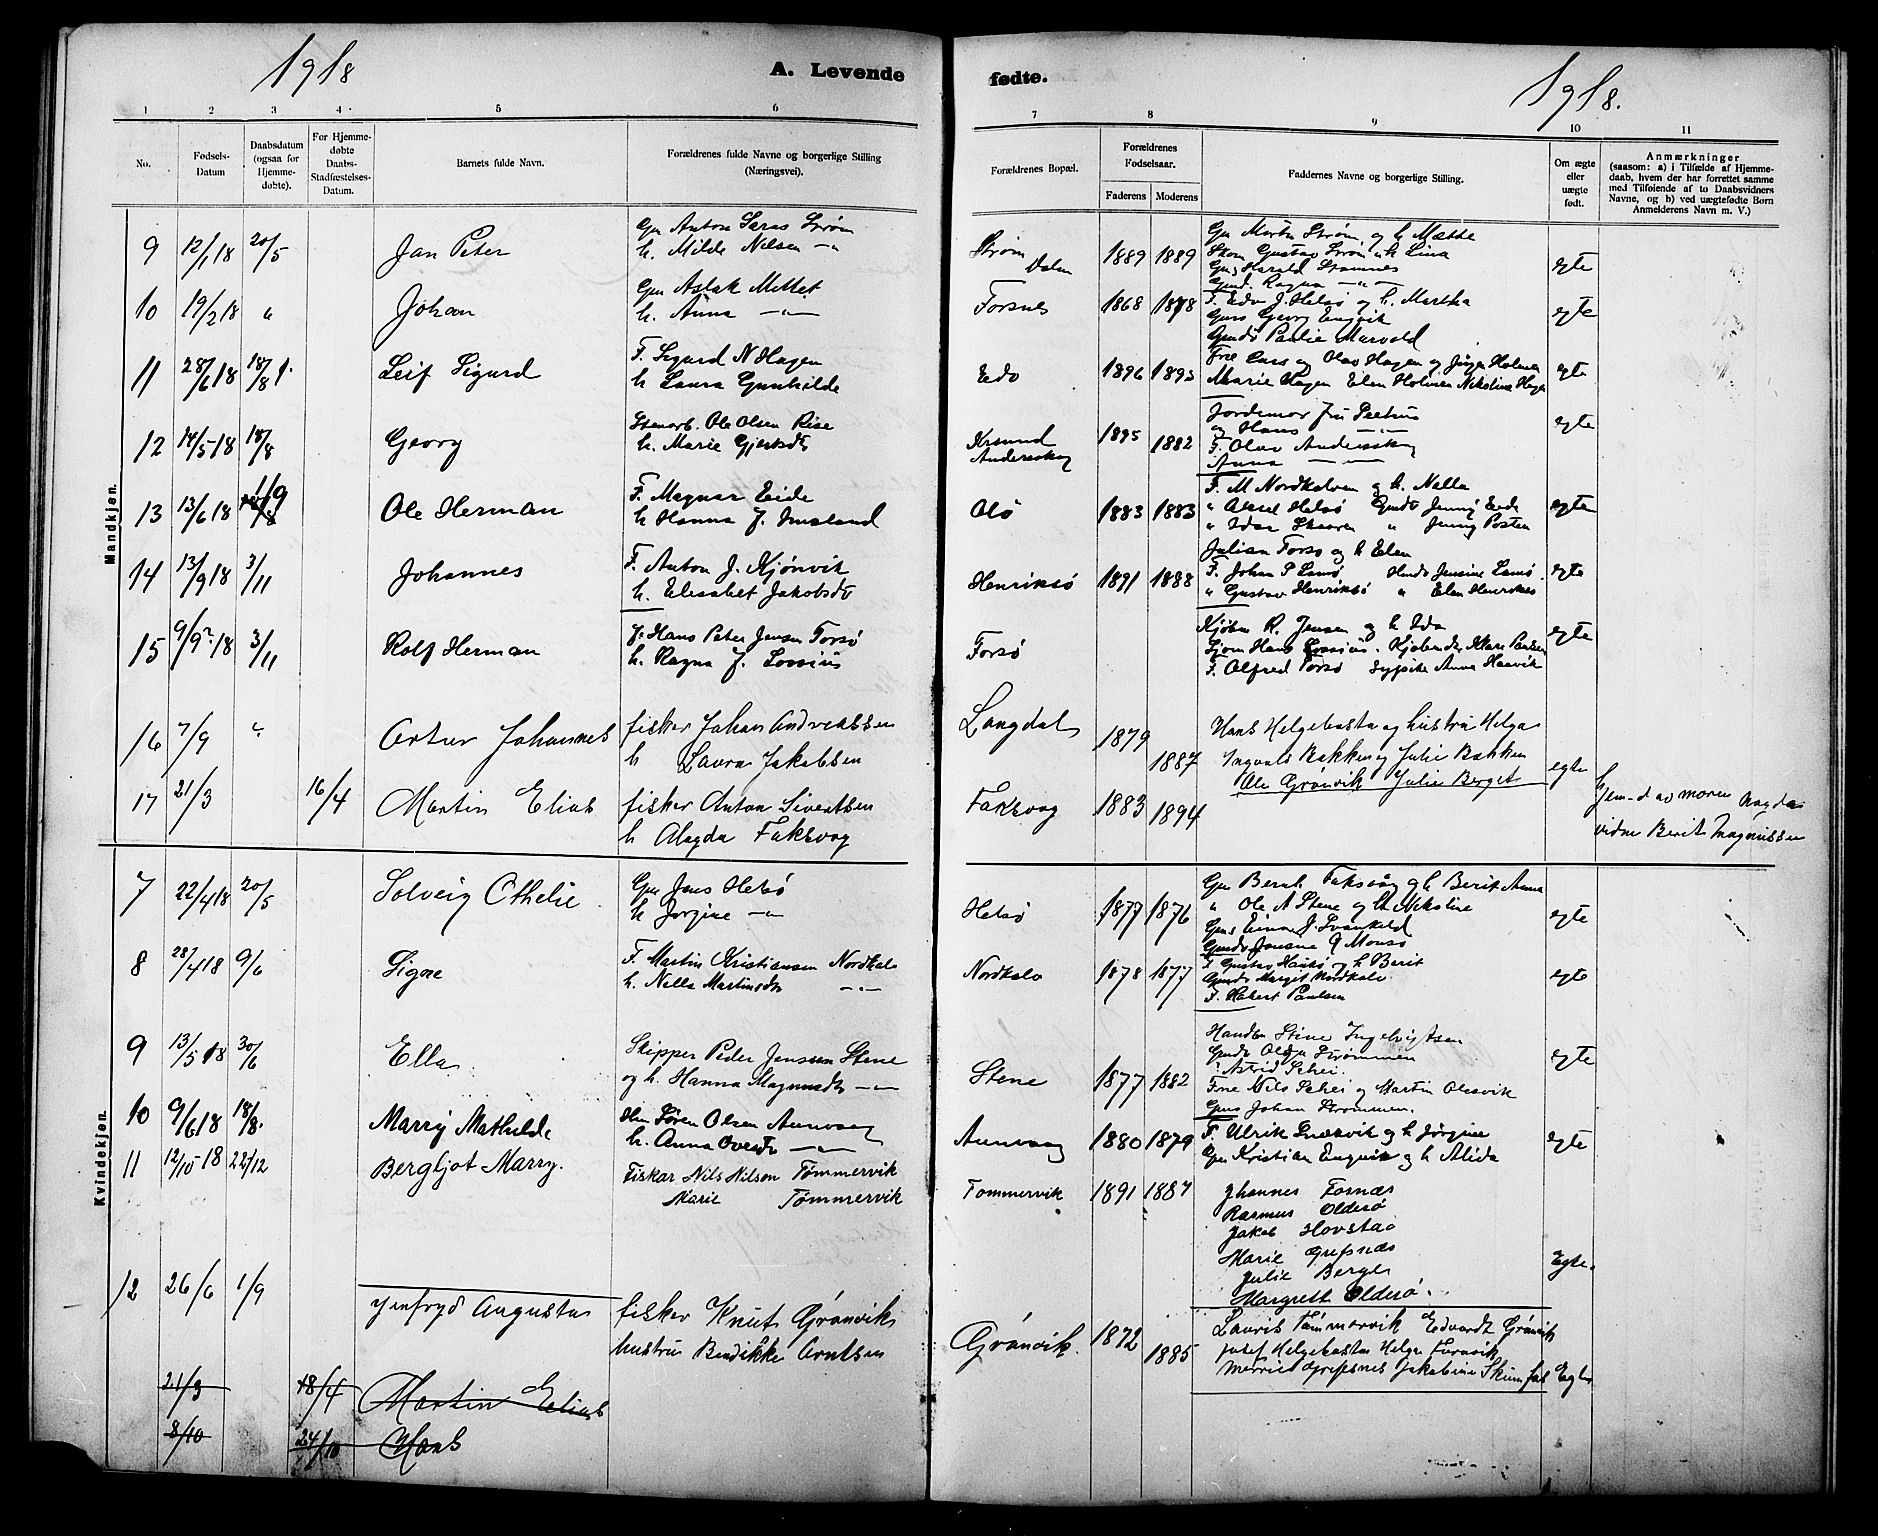 1918
A. Levende
fødte.
1918.
1 2 3 4 5 6
7 8 9 10 11
No.
Fødsels-
Datum
Daabsdatum
(ogsaa for
Hjemme-
døbte).
For Hjemme-
døbte
Daabs-
Stadfæstelses-
Datum.
Barnets fulde Navn.
Forældrenes fulde Navne og borgerlige Stilling
(Næringsvei).
Forældrenes Bopæl.
Forældrenes
Fødselsaar.
Faderens Moderens
Faddernes Navne og borgerlige Stilling.
Om ægte
eller
uægte
født.
Anmærkninger
(saasom: a) i Tilfælde af Hjemme-
daab, hvem der har forrettet samme
med Tilføiende af to Daabsvidners
Navne, og b) ved uægtefødte Børn
Anmelderens Navn m. V.)
Mandkjøn.
9 12/1 18 20/5 Jan Peter
Gm Anton Saras Strøm
h. Milde Nilsen -"-
Strøm
Dolm
1889 1889
Gm Morten Strøm, og h. Mætte
Gustav Strøm h Lina
Gms Harald Strømnes
Gmd. Ragna -"-
egte
10 19/2 18 " Johan
Gm Aslak Mittet
h. Anna -"-
Forsnes
1868 1878
F. Edv. J. Helsø og h. Martha
Gms Georg Engvik
Gmdt Paulie
egte
11 28/6 18 18/8 Leif Sigurd
F. Sigurd N Hagen
h Laura Gunhilde
Edø
1896 1895
Fne Lars og Olav Hagen og Jørgen Holmen
Marie Hagen Elen Holmen Nikoline Hagen
egte
12 14/5 18 18/8 Georg
Stenarb. Ole Olsen Rise
h. Marie Gjertsdt
Krsund
Andersskog
1895 1882
Jordemor Fru
og Hans -"-
F. Olav Andersskog
Anna -"-
egte
13 13/6 18 1/9 Ole Herman
F. Magnar Eide
h Hanna J. Imsland
Olø
1883 1883
F. M Nordkalven og h. Nella
" Aksel Helsø Gmdt Jenny Eide
" Idar Skaaren " Jenny Posten
egte
14 13/9 18 3/11 Johannes
F. Anton J. Kjønvik
h. Elesabet Jakobsdt
Henriksø
1891 1888
Julian Forsø og h Elen
F. Johan P Lamø Hmdt Jensine Lamø.
" Gustav Henriksø " Elen Henriksø
egte
15 9/9 18 3/11 Rolf Herman
F. Hans Peter Jensen Forsø
h. Ragna J. Lossius
Forsø
Kjøbm R. Jensen og h Ida
Hans Lossius. Klara Paulsen
F. Olfred Forsø Anna Haavik
egte
16 7/9 " Artur Johannes
fisker Johan Andreassen
h Laura Jakobsen
Langdal
1879 1887
Hans Helgebostad og hustru Helga
Ingvald Bakken og Julie Bakken
Ole Grønvik Julie Berget
egte
17 21/3 16/4 Martin Elias
fisker Anton Sivertsen
h Magda Faksvag
Faksvag
1883 1894
hjem-d av moren Magda
vidne Berit Magnussen
Kvindekjøn.
7 22/4 18 20/5 Solveig Othelie
Gm Jens Helsø
h Jorgine -"-
Helsø
1877 1876
Gm Bernh. Faksvåg og h Berit Anna
" Ole A Stene og h Nikoline
Gms Einar J. Svankild
Gmdt Jensine Q Monsø
egte
8 28/4 18 9/6 Signe
F. Martin Kristiansen Nordkalv
h. Nella Martinsdt -"-
Nordkalv
1878 1877
F Gustav og h Berit
Gmdt Margit Nordkalv
F. Paulsen
egte
9 13/5 18 30/6 Ella
Skipper Peder Jenssen Stene
og h. Hanna Magnusdt -"-
Stene
1877 1882
Handm Stene Ingebrigtsen
Gmdt Olga Strømmen
" Astrid Schei.
Fne Nils Schei og Martin Olesvik
Gms Johan Strømmen.
egte
10 9/6 18 18/8. Marry Mathilde
Hm Søren Olsen Aunvaag
h. Anna Ovesdt -"-
Aunvaag
1880 1879
F. Ulrik Snekvik og h Jørgine
Gm Kristian Engvik og h Alida
egte
11 12/10 18 22/12 Bergljot Marry.
Fisker Nils Nilson Tømmervik
Marie Tømmervik
Tømmervik
1891 1887
Johannes Fornæs
Rasmus Oldesø
Jakob Hovstad
Marie Grefsnæs
Julie Berget
Margrett Oldesø.
Egte.
12 26/6 1/9 Jenfryd Augusta
fisker Knut Grønvik
hustru Bendikke Arntsen
Grønvik.
1872 1885
Laurits Tømmervik Edvardt Grønvik
Josef Helgebostad Helga Furuvik
Merriet Grefsnes Jakobine Skumfos
Egte
21/3 18/4 Martin Elias
8/10 24/10 Hans